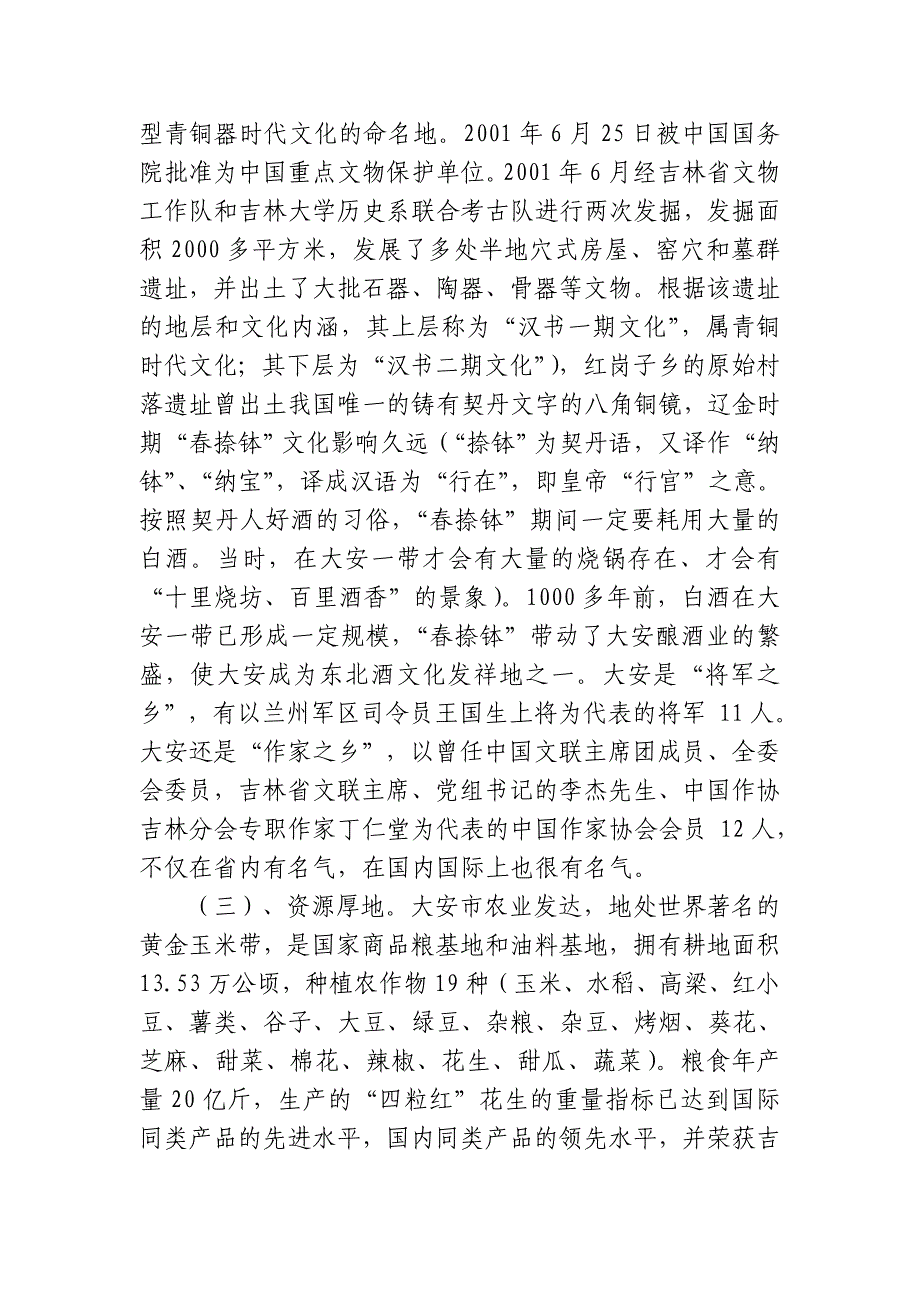 型青铜器时代文化的命名地。2001 年 6 月 25 日被中国国务
院批准为中国重点文物保护单位。2001 年 6 月经吉林省文物
工作队和吉林大学历史系联合考古队进行两次发掘，发掘面
积 2000 多平方米，发展了多处半地穴式房屋、窑穴和墓群
遗址，并出土了大批石器、陶器、骨器等文物。根据该遗址
的地层和文化内涵，其上层称为“汉书一期文化”，属青铜
时代文化；其下层为“汉书二期文化”），红岗子乡的原始村
落遗址曾出土我国唯一的铸有契丹文字的八角铜镜，辽金时
期“春捺钵”文化影响久远（“捺钵”为契丹语，又译作“纳
钵”、“纳宝”，译成汉语为“行在”，即皇帝“行宫”之意。
按照契丹人好酒的习俗，“春捺钵”期间一定要耗用大量的
白酒。当时，在大安一带才会有大量的烧锅存在、才会有
“十里烧坊、百里酒香”的景象）。1000 多年前，白酒在大
安一带已形成一定规模，“春捺钵”带动了大安酿酒业的繁
盛，使大安成为东北酒文化发祥地之一。大安是“将军之
乡”，有以兰州军区司令员王国生上将为代表的将军 11 人。
大安还是“作家之乡”，以曾任中国文联主席团成员、全委
会委员，吉林省文联主席、党组书记的李杰先生、中国作协
吉林分会专职作家丁仁堂为代表的中国作家协会会员 12 人，
不仅在省内有名气，在国内国际上也很有名气。
（三）、资源厚地。大安市农业发达，地处世界著名的
黄金玉米带，是国家商品粮基地和油料基地，拥有耕地面积
13.53 万公顷，种植农作物 19 种（玉米、水稻、高梁、红小
豆、薯类、谷子、大豆、绿豆、杂粮、杂豆、烤烟、葵花、
芝麻、甜菜、棉花、辣椒、花生、甜瓜、蔬菜）。粮食年产
量 20 亿斤，生产的“四粒红”花生的重量指标已达到国际
同类产品的先进水平，国内同类产品的领先水平，并荣获吉